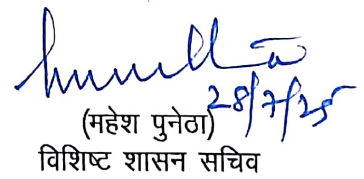 28/7/25
(महेश पुनेठा)
विशिष्ट शासन सचिव